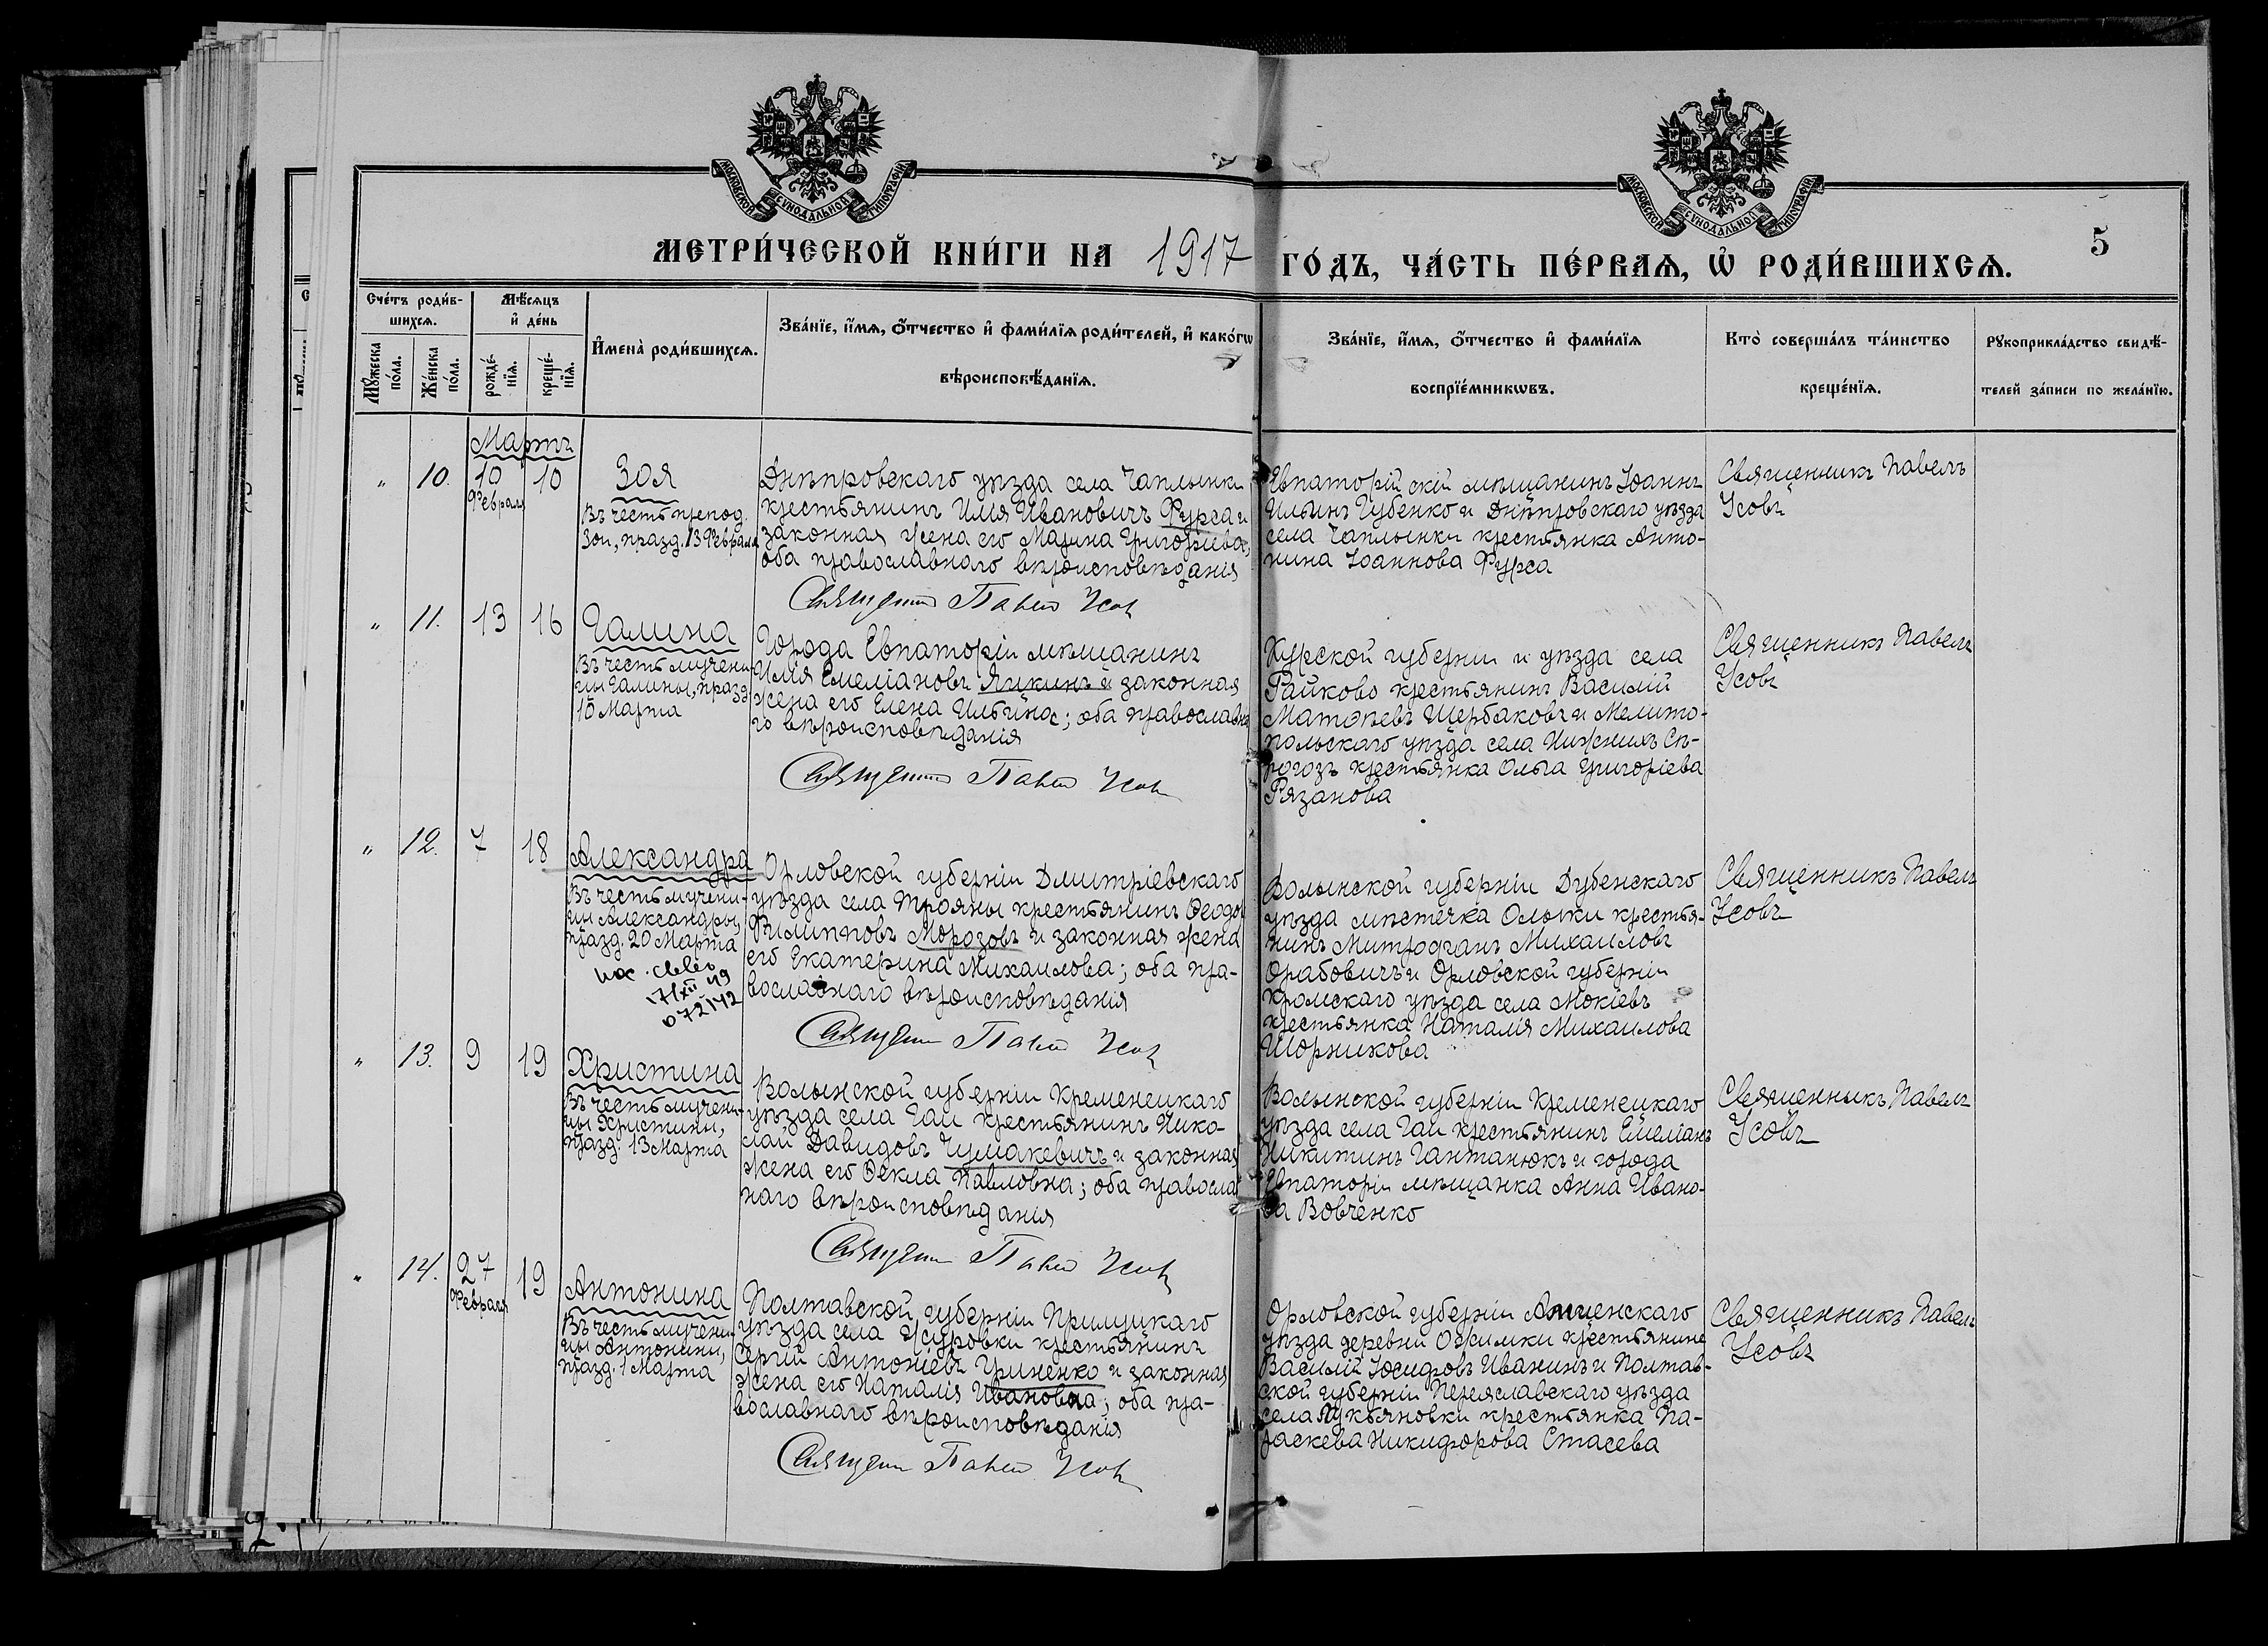 МОСКОВСКОЙ СУНОДАЛЬНОЙ ТИПОГРАФІИ
МОСКОВСКОЙ СУНОДАЛЬНОЙ ТИПОГРАФІИ
МЕТРИ́ЧЕСКОЙ КНИ́ГИ НА 1917 ГО́ДЪ, ЧА́СТЬ ПЕ́РВАѦ, Ѡ҆ РОДИ́ВШИХСѦ.
5
Сче́тъ роди́в-
шихсѧ.
Мꙋ́жеска
по́ла.
Же́нска
по́ла.
Мѣ́сяцъ
и҆ де́нь
рожде́-
нїѧ.
креще́-
нїѧ.
И҆мена̀ роди́вшихсѧ.
Зва́нїе, и҆́мѧ, ѻ҆́тчество и҆ фами́лїѧ роди́телей, и҆ како́гѡ
вѣроисповѣ́данїѧ.
Зва́нїе, и҆́мѧ, ѻ҆́тчество и҆ фами́лїѧ
воспрїе́мникѡвъ.
Кто̀ соверша́лъ та́инство
креще́нїѧ.
Рꙋкоприкла́дство свидѣ́-
телей за́писи по жела́нїю.
Мартъ
" 10. 10 10
Февраля
Зоя
Въ честь препод.
Зои, празд. 13 Февраля
Днѣпровскаго уѣзда села Чаплынки
крестьянинъ Илія Ивановичъ Фурса и
законная жена его Марина Григоріева,
оба православнаго вѣроисповѣданія
Священникъ Павелъ Усовъ
Евпаторійскій мѣщанинъ Іоаннъ
Ильинъ Губенко и Днѣпровскаго уѣзда
села Чаплынки крестьянка Анто-
нина Іоаннова Фурса
Священникъ Павелъ
Усовъ
" 11. 13 16
Галина
Въ честь мучени-
цы Галины, празд.
10 Марта
Города Евпаторіи мѣщанинъ
Илія Емеліановъ Яцкинъ и законная
жена его Елена Ильина; оба православна
го вѣроисповѣданія
Священникъ Павелъ Усовъ
Курской губерніи и уѣзда села
Райково крестьянинъ Василій
Матѳѣевъ Щербаковъ и Мелито-
польскаго уѣзда села Нижнихъ Сѣ-
рогозъ крестьянка Ольга Григоріева
Рязанова
Священникъ Павелъ
Усовъ
" 12. 7 18
Александра
Въ честь мучени-
цы Александры,
празд. 20 Марта
17/XII 49
072142
Орловской губерніи Дмитріевскаго
уѣзда села Трояны крестьянинъ Ѳеодоръ
Филипповъ Морозовъ и законная жена
его Екатерина Михаилова; оба пра-
вославнаго вѣроисповѣданія
Священникъ Павелъ Усовъ
Волынской губерніи Дубенскаго
уѣзда мѣстечка Олыки крестья-
нинъ Митрофанъ Михаиловъ
Орабовичъ и Орловской губерніи
Кромскаго уѣзда села Мокіевъ
крестьянка Наталія Михаилова
Шорникова
Священникъ Павелъ
Усовъ
" 13. 9 19
Христина
Въ честь мучени-
цы Христины,
празд. 13 Марта
Волынской губерніи Кременецкаго
уѣзда села Гаи крестьянинъ Нико-
лай Давидовъ Чумакевичъ и законная
жена его Ѳекла Павловна; оба правосла
наго вѣроисповѣданія
Священникъ Павелъ Усовъ
Волынской губерніи Кременецкаго
уѣзда села Гаи крестьянинъ Емеліанъ
Никитинъ Гантанюкъ и города
Евпаторіи мѣщанка Анна Ивано-
ва Вовченко
Священникъ Павелъ
Усовъ
" 14. 27 19
Февраля
Антонина
Въ честь мучени-
цы Антонины,
празд. 1 Марта
Полтавской губерніи Прилуцкаго
уѣзда села Журовки крестьянинъ
Сергій Антоніевъ Гриненко и законная
жена его Наталія Ивановна; оба пра-
вославнаго вѣроисповѣданія
Священникъ Павелъ Усовъ
Орловской губерніи Мценскаго
уѣзда деревни Ожимки крестьянинъ
Василій Іосифовъ Иванинъ и Полтав-
ской губерніи Переяславскаго уѣзда
села Лукьяновки крестьянка Па-
раскева Никифорова Стасева
Священникъ Павелъ
Усовъ